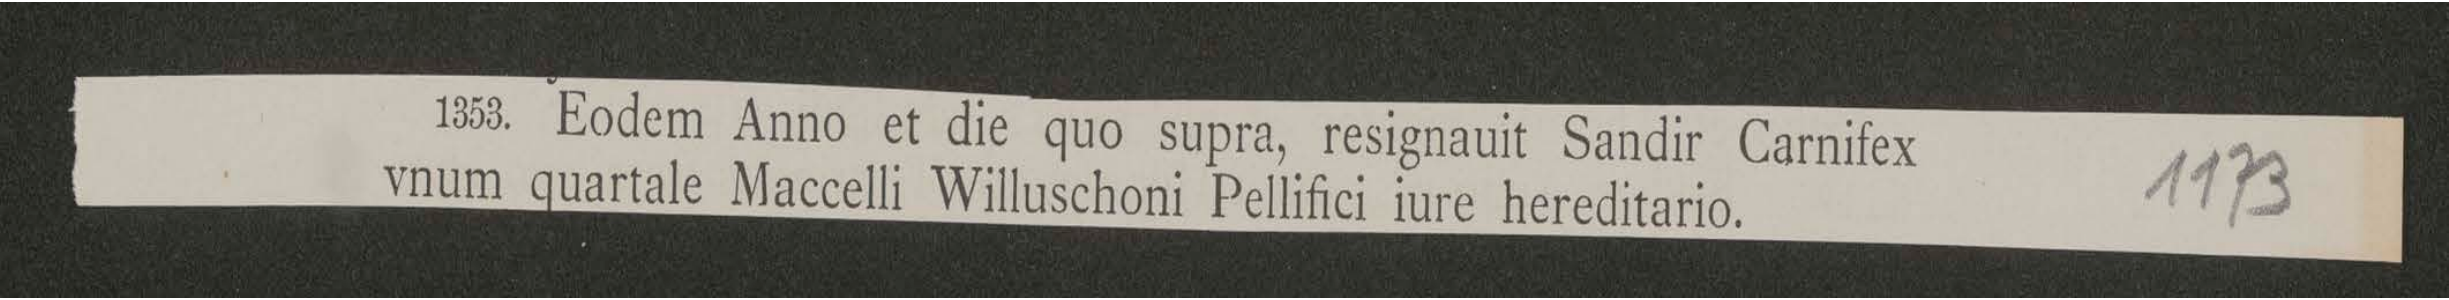 1353. Eodem Anno et die quo supra, resignauit Sandir Carnifex
vnum quartale Maccelli Willuschoni Pellifici iure hereditario.
1173